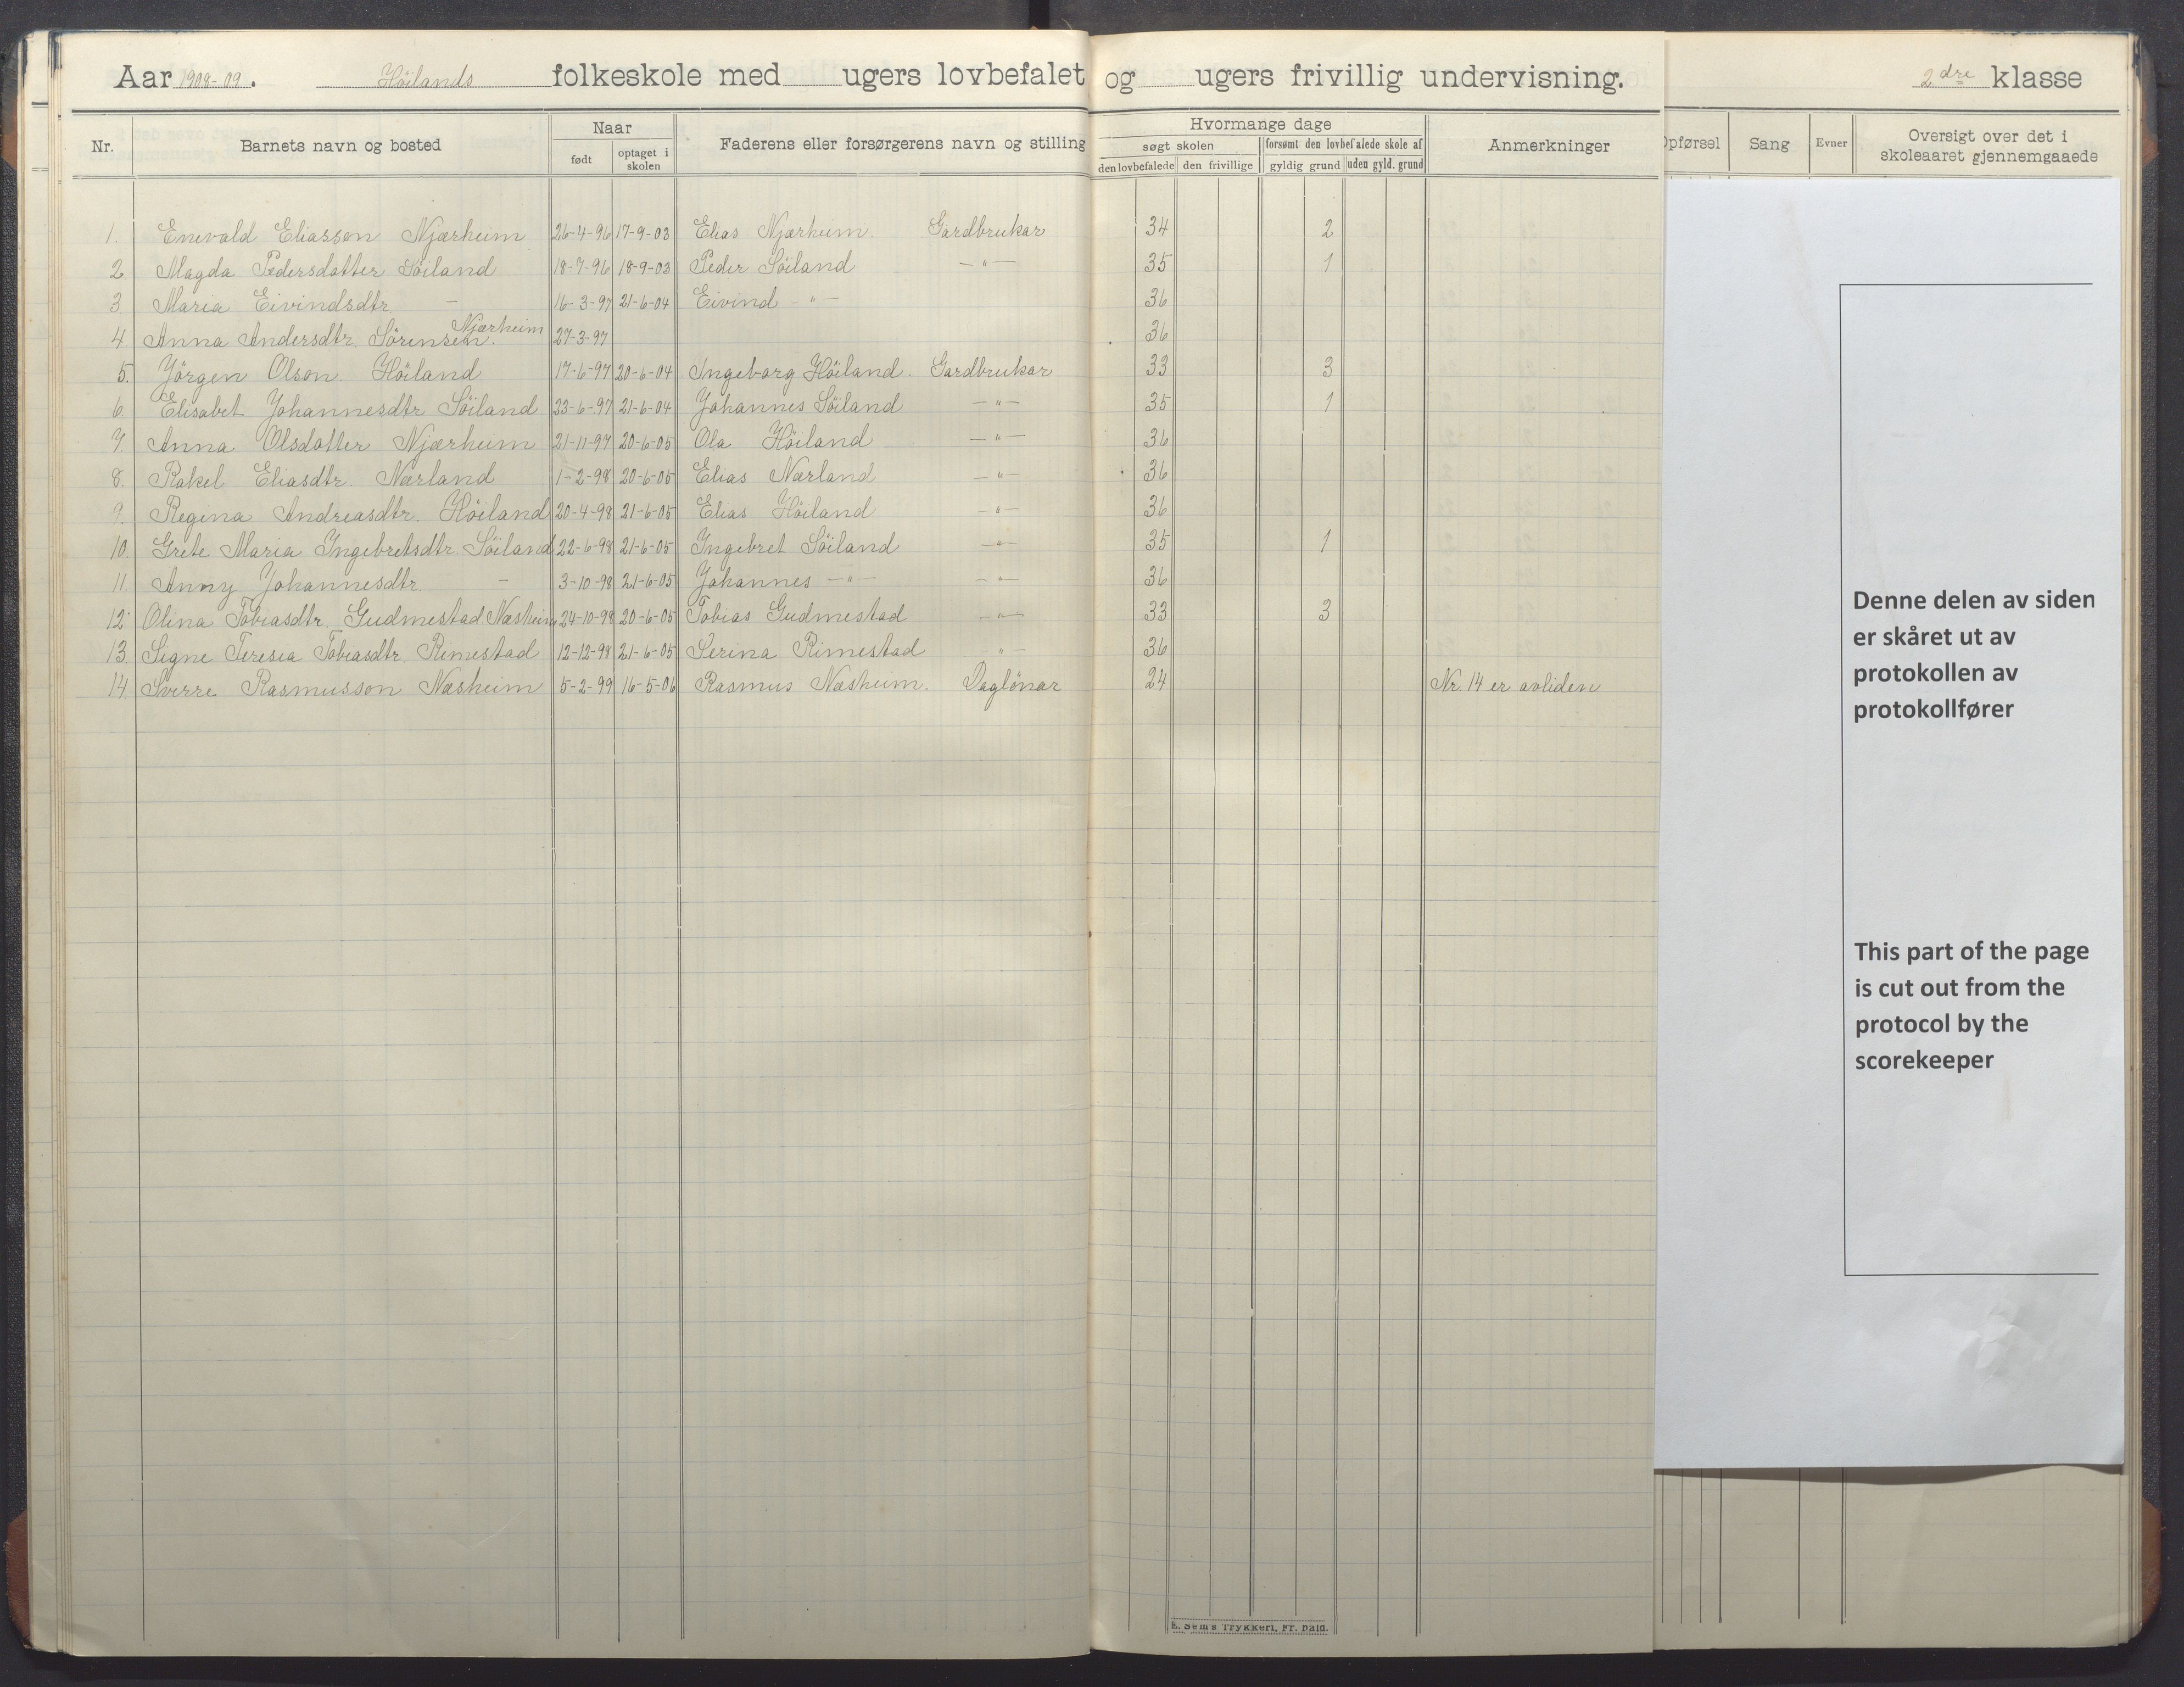 Aar 1908-09. Höilands folkeskole med ugers lovbefalet og ugers frivillig undervisning. 2dre klasse
Nr. Barnets navn og bosted Naar født optaget i skolen Faderens eller forsørgerens navn og stilling Hvormange dage søgt skolen den lovbefalede den frivillige forsømt den lovbefalede skole af gyldig grund uden gyld. grund Anmerkninger Opførsel Sang Evner Oversigt over det i skoleaaret gjennemgaaede
1. Enevald Eliasson Njærheim 26-4-96 17-9-03 Elias Njærheim. Gardbrukar 34 2
2 Magda Pedersdatter Söiland 18-7-96 18-9-03 Peder Söiland -"- 35 1
3 Maria Eivindsdtr - 16-3-97 21-6-04 Eivind -"- 36
4 Anna Andersdtr. Sörensen. Njærheim 27-3-97 36
5. Jörgen Olson Höiland 17-6-97 20-6-04 Ingeborg Höiland. Gardbrukar 33 3
6. Elisabet Johannesdtr Söiland 23-6-97 21-6-04 Johannes Söiland -"- 35 1
7. Anna Olsdatter Njærheim 21-11-97 20-6-05 Ola Höiland -"- 36
8. Rakel Eliasdtr. Nærland 1-2-98 20-6-05 Elias Nærland -"- 36
9. Regina Andreasdtr. Höiland 20-4-98 21-6-05 Elias Höiland -"- 36
10. Grete Maria Ingebretsdtr Söiland 22-6-98 21-6-05 Ingebret Söiland -"- 35 1
11. Anny Johannesdtr. - 3-10-98 21-6-05 Johannes -"- -"- 36
12 Olina Tobiasdtr. Gudmestad Næsheim 24-10-98 20-6-05 Tobias Gudmestad -"- 33 3
13. Signe Teresia Tobiasdtr Rimestad 12-12-98 21-6-05 Serina Rimestad "- 36
14 Sverre Rasmusson Næsheim 5-2-99 16-5-06 Rasmus Næsheim. Daglönar 24 Nr. 14 er avliden
Denne delen av siden
er skåret ut av
protokollen av
protokollfører
This part of the page
is cut out from the
protocol by the
scorekeeper
E. Sem's Trykkeri, Fr. hald.